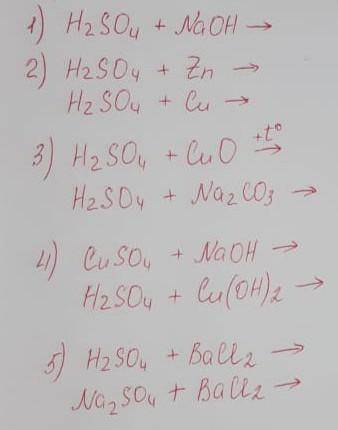 1) H₂SO₄ + NaOH →
2) H₂SO₄ + Zn →
H₂SO₄ + Cu →
3) H₂SO₄ + CuO +t° →
H₂SO₄ + Na₂CO₃ →
4) CuSO₄ + NaOH →
H₂SO₄ + Cu(OH)₂ →
5) H₂SO₄ + BaCl₂ →
Na₂SO₄ + BaCl₂ →